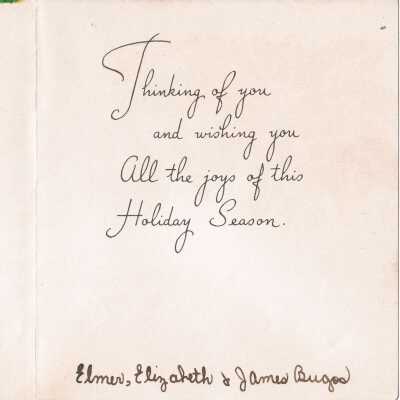 Thinking of you
and wishing you
All the joys of this
Holiday Season.
Elmer, Elizabeth & James Bugos